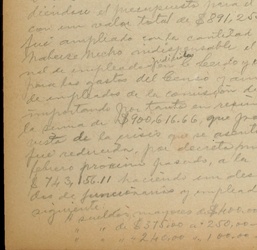 diéndose el presupuesto para el
con un valor total de $ 891,25
fué ampliado con la cantidad
haberse hecho indispensable el
nal de empleados
para los gastos del Censo y aum
de empleados de la comisión de
importando por tanto en resum
la suma de $ 900,616.66, que
vista de la crisis que se
fué reducida, por decreto
febrero próximo pasado, a la
$ 743,156.11 haciendo
dos de funcionarios y emplead
siguiente:
A sueldos mayores de $400.00
" " de $375.00 " 250.00
" " " 240.00 " 100.00